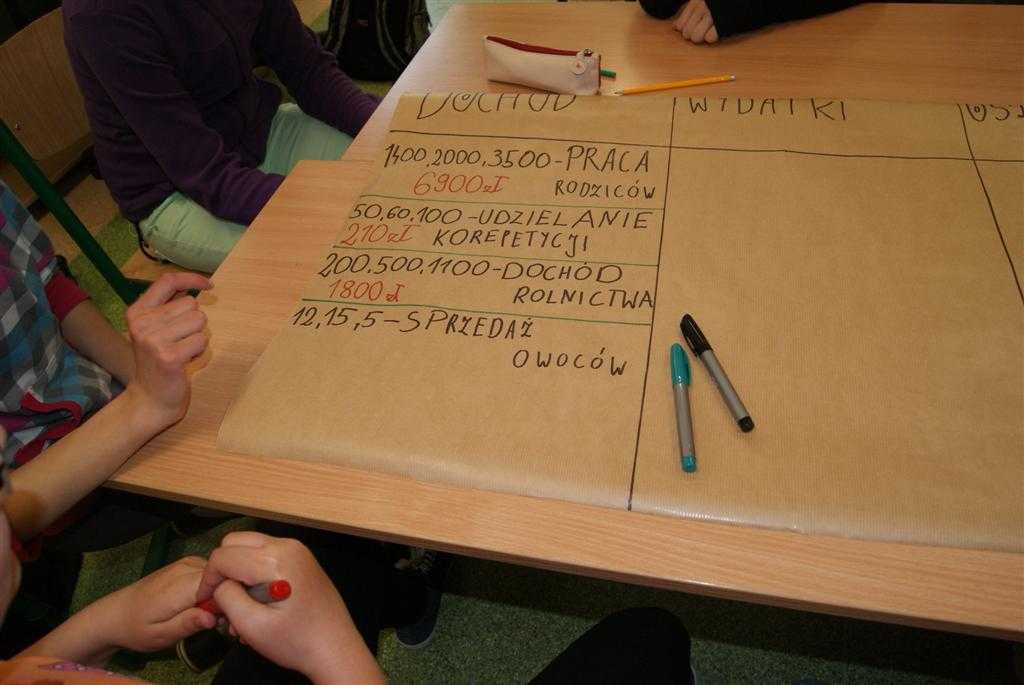 DOCHÓD WYDATKI
1400,2000,3500-PRACA
6900zł RODZICÓW
50,60,100-UDZIELANIE
210zł KOREPETYCJI
200.500.1100-DOCHÓD
1800zł ROLNICTWA
12,15,5-SPRZEDAŻ
OWOCÓW